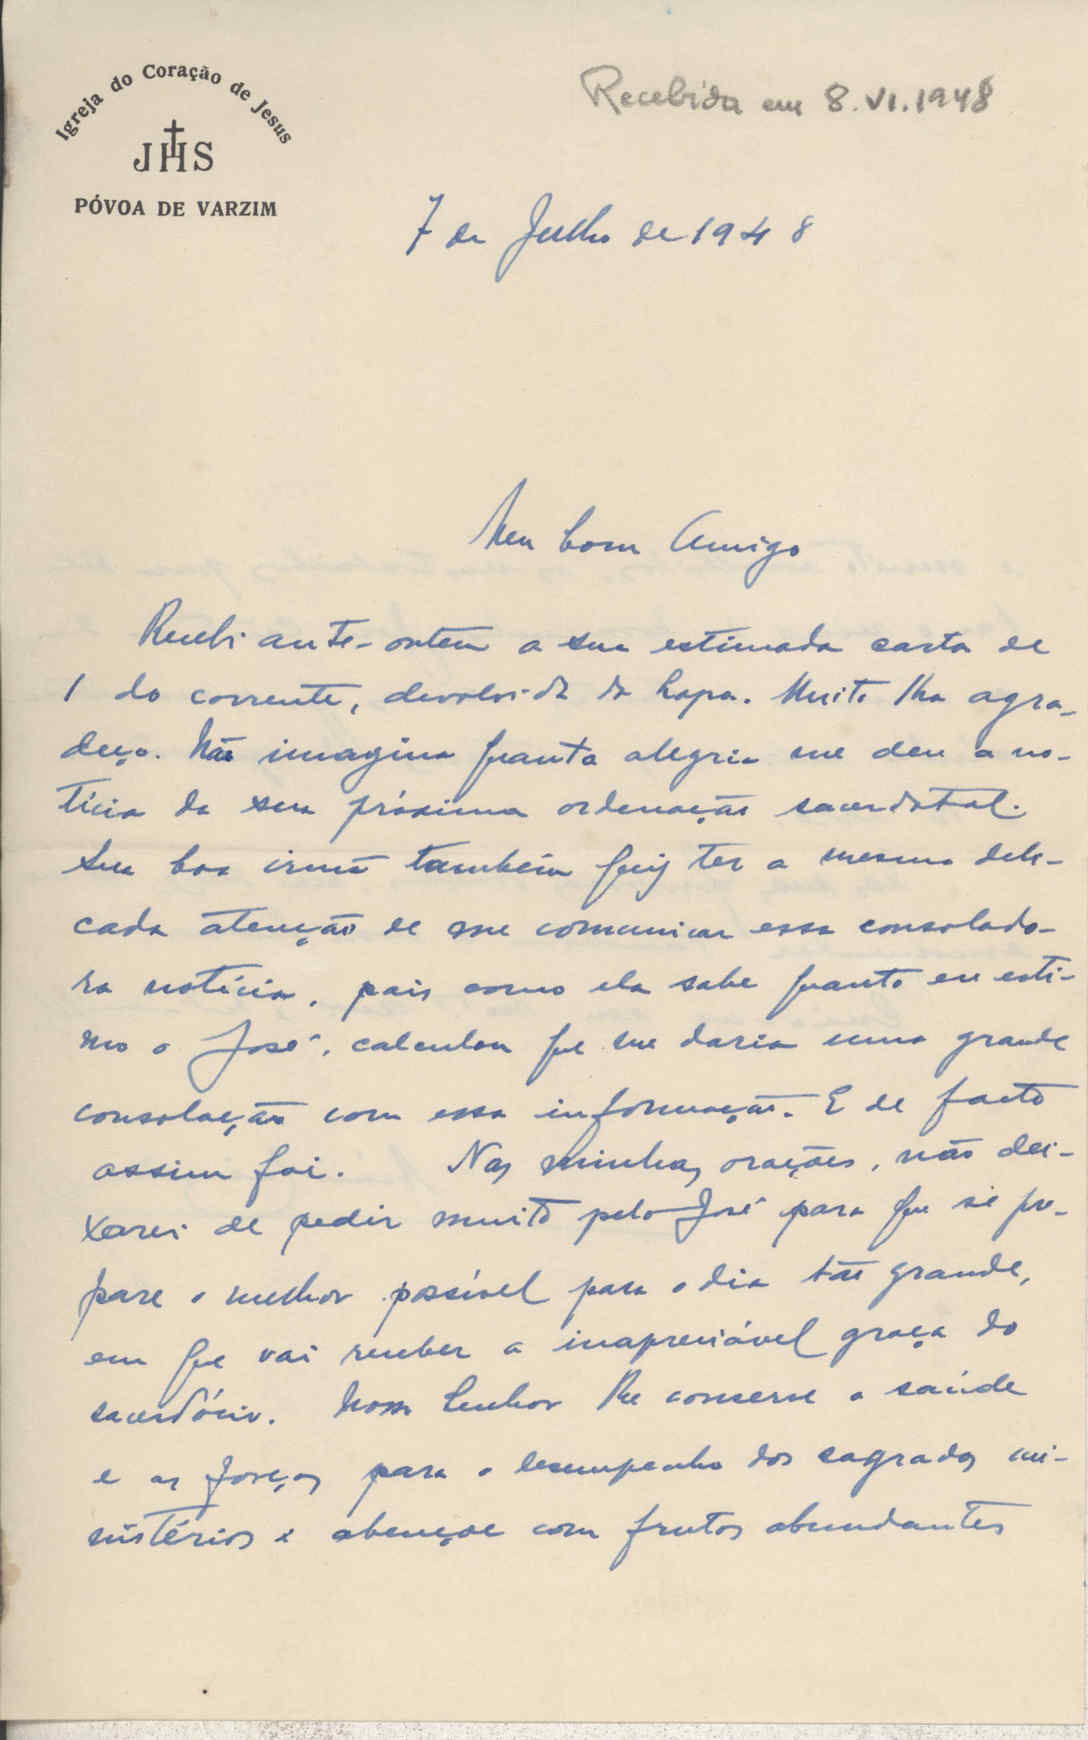 Igreja do Coração de Jesus
JHS
PÓVOA DE VARZIM
Recebida em 8.VI.1948
7 de Julho de 1948
Meu bom Amigo
Recebi ante-ontem a sua estimada carta de
1 do corrente, devolvida da Lapa. Muito lha agra-
deço. Não imagina quanta alegria me deu a no-
tícia da sua próxima ordenação sacerdotal.
Sua boa irmã também quiz ter a mesma deli-
cada atenção de me comunicar essa consolado-
ra notícia, pois como ela sabe quanto eu esti-
mo o José, calculou que me daria uma grande
consolação com essa informação. E de facto
assim foi. Nas minhas orações, não dei-
xarei de pedir muito pelo José para que se pre-
pare o melhor possível para o dia tão grande,
em que vai receber a inapreciável graça do
sacerdócio. Nosso Senhor lhe conserve a saúde
e as forças para o desempenho dos sagrados mi-
nistérios e abençoe com frutos abundantes